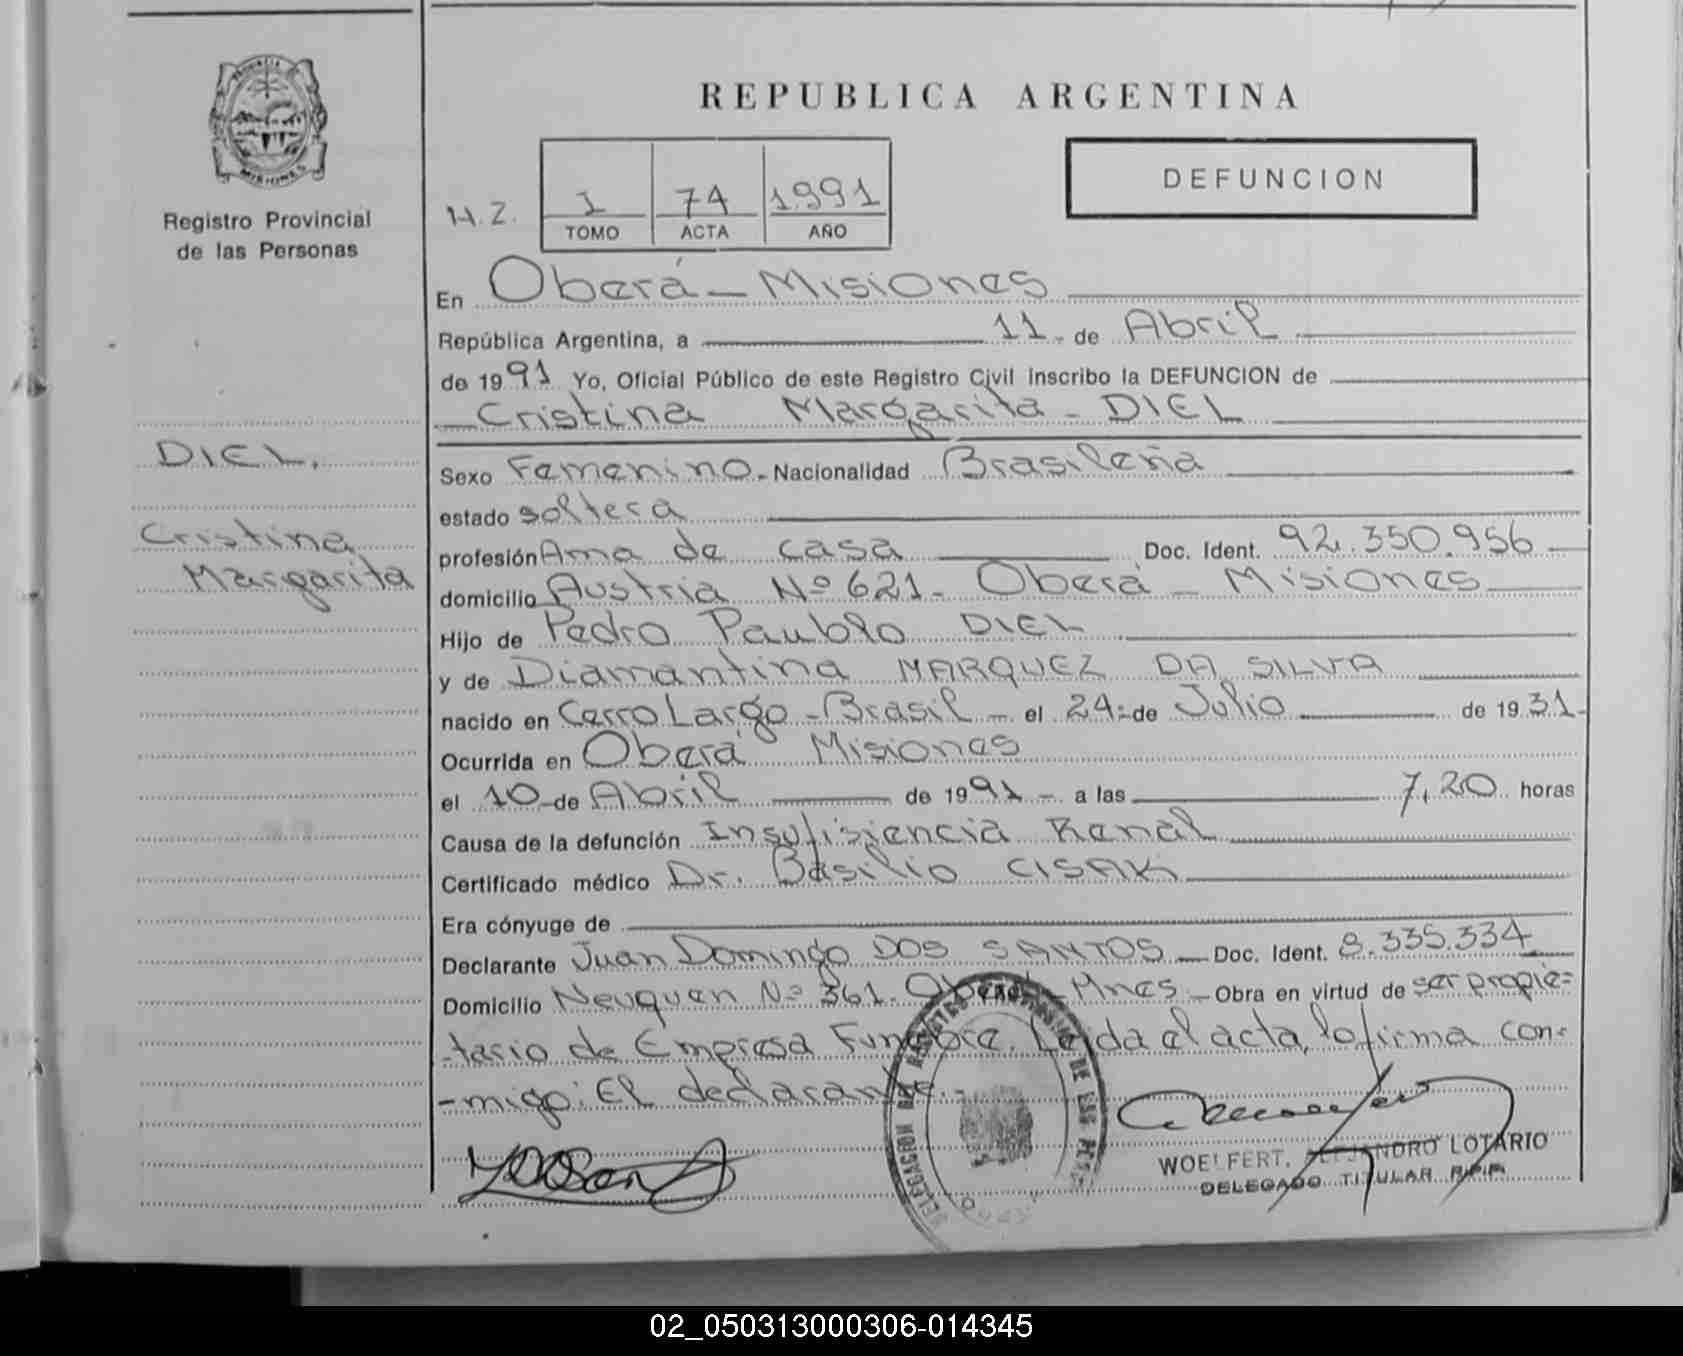 PROVINCIA DE
MISIONES
Registro Provincial
de las Personas
DIEL.
Cristina
Margarita
REPUBLICA ARGENTINA
DEFUNCION
H.Z.
I 74 1991
TOMO ACTA AÑO
En Oberá - Misiones
República Argentina, a 11 - de Abril
de 1991 Yo, Oficial Público de este Registro Civil inscribo la DEFUNCION de
Cristina Margarita - DIEL
Sexo Femenino. Nacionalidad Brasileña
estado soltera
profesión Ama de casa Doc. Ident. 92.350.956
domicilio Austria Nº 621 - Oberá - Misiones
Hijo de Pedro Paublo DIEL
y de Diamantina MARQUEZ DA SILVA
nacido en Cerro Largo - Brasil - el 24 - de Julio de 1931 -
Ocurrida en Oberá Misiones
el 10 - de Abril de 1991 - a las 7,20 horas
Causa de la defunción Insufisiencia Renal
Certificado médico Dr. Basilio CISAK
Era cónyuge de
Declarante Juan Domingo DOS SANTOS Doc. Ident. 8.335.334
Domicilio Neuquen Nº 361. Oberá - Mnes - Obra en virtud de ser propie=
-tario de Empresa Funebre. Leída el acta, lo firma con=
-migo: El declarante. -
WOELFERT, ALEJANDRO LOTARIO
DELEGADO TITULAR R.P.P.
02_050313000306-014345